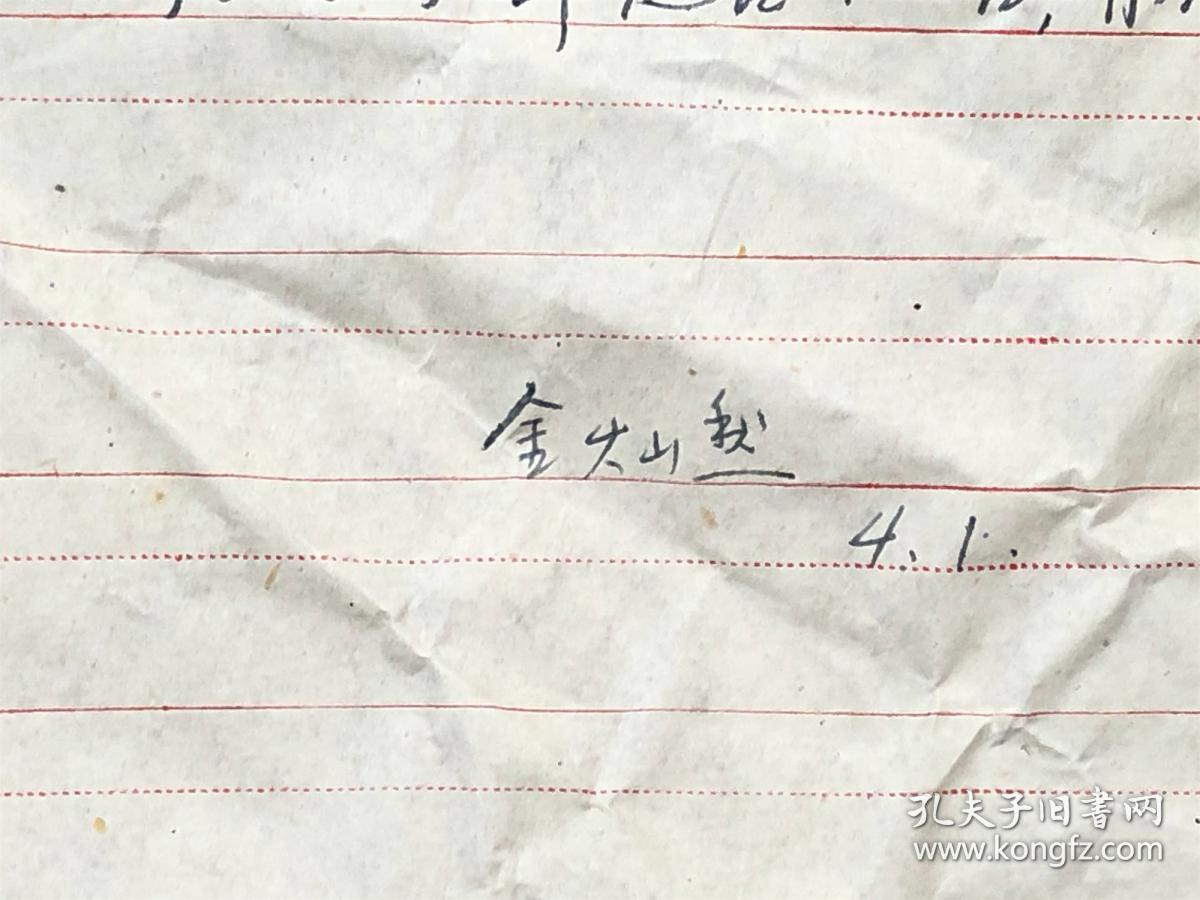 金灿然
4.1.
孔夫子旧书网
www.kongfz.com